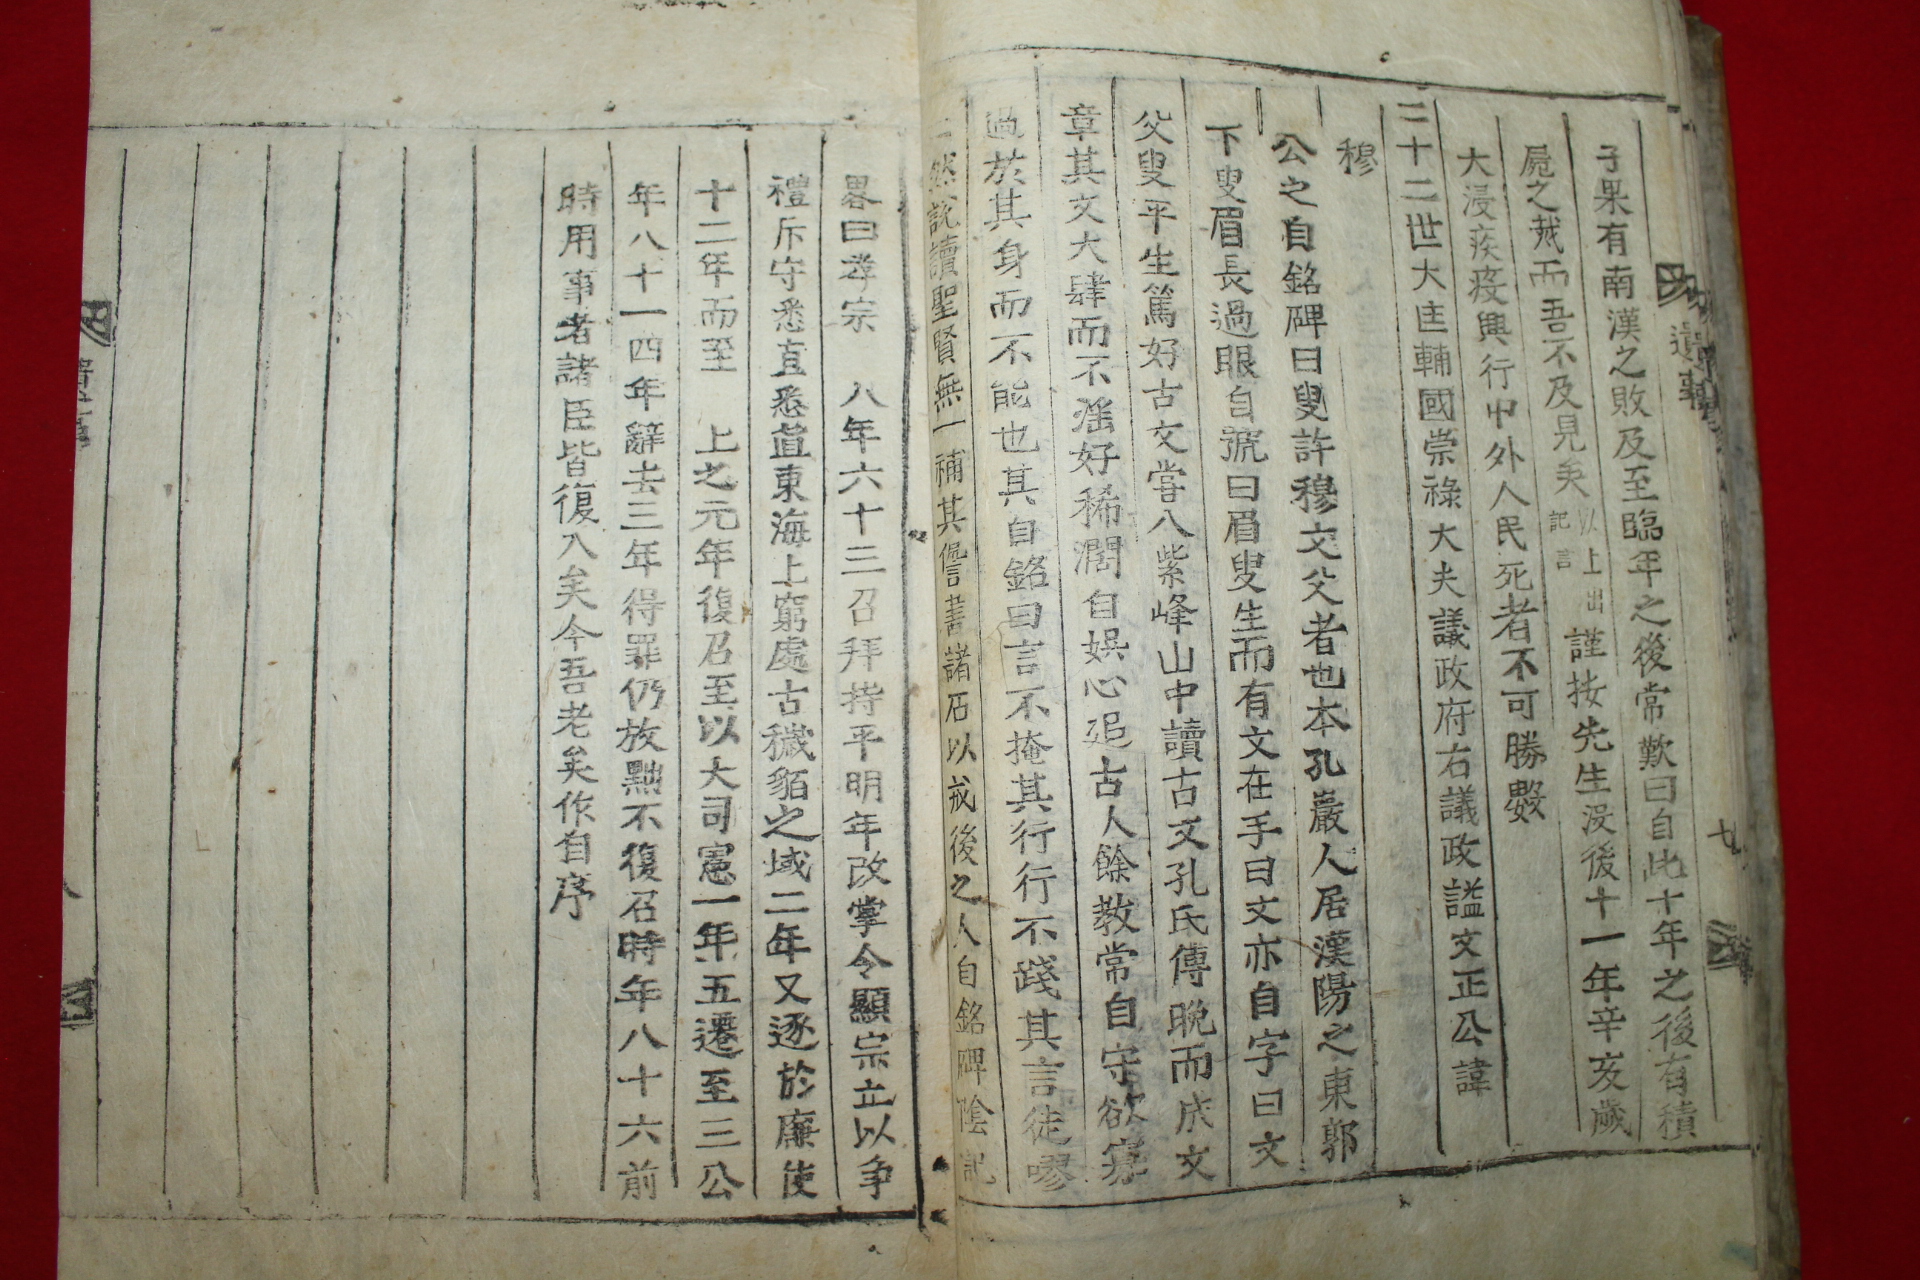 子果有南漢之敗及至臨年之後常歎曰自此十年之後有積
屍之烖而吾不及見矣以上出記言謹按先生沒後十一年辛亥歲
大浸疾疫興行中外人民死者不可勝數
二十二世大匡輔國崇祿大夫議政府右議政謚文正公諱
穆
公之自銘碑曰叟許穆文父者也本孔巖人居漢陽之東郭
下叟眉長過眼自號曰眉叟生而有文在手曰文亦自字曰文
父叟平生篤好古文嘗入紫峰山中讀古文孔氏傳晩而成文
章其文大肆而不滛好稀濶自娛心追古人餘教常自守欲寡
過於其身而不能也其自銘曰言不掩其行行不踐其言徒嘐
然說讀聖賢無一補其諐書諸石以戒後之人自銘碑陰記
畧曰孝宗 八年六十三召拜持平明年改掌令顯宗立以爭
禮斥守悉直悉直東海上窮處古穢貊之域二年又逐於廉使
十二年而至 上之元年復召至以大司憲一年五遷至三公
年八十一四年辭去三年得罪仍放黜不復召時年八十六前
時用事者諸臣皆復入矣今吾老矣作自序
遺事
七